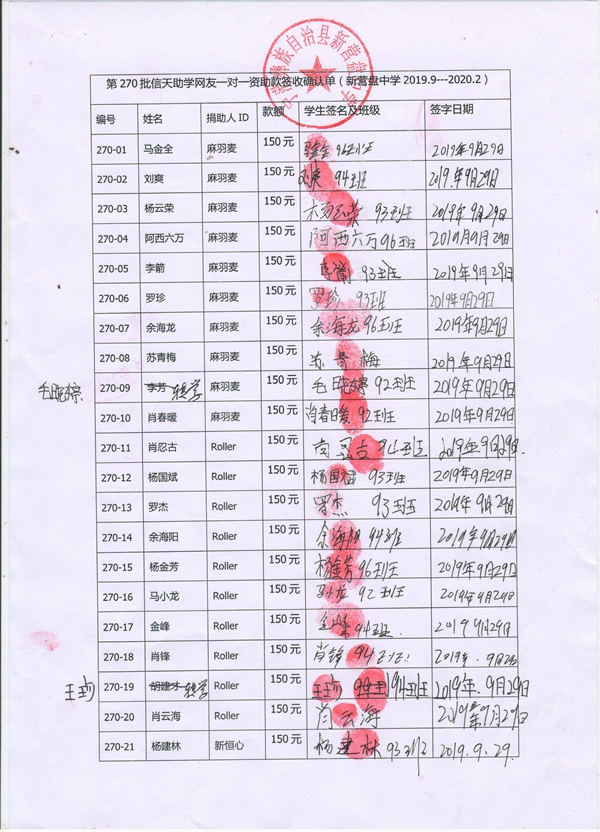 宁蒗彝族自治县新营盘中学
第 270 批信天助学网友一对一资助款签收确认单（新营盘中学 2019.9---2020.2）
编号 姓名 捐助人 ID 款额 学生签名及班级 签字日期
270-01 马金全 麻羽麦 150 元 马金全 96班 2019年9月29日
270-02 刘爽 麻羽麦 150 元 刘爽 94班 2019.年9月29日
270-03 杨云荣 麻羽麦 150 元 杨云荣 93班 2019年9月29日
270-04 阿西六万 麻羽麦 150 元 阿西六万 96班 2019年9月29日
270-05 李箭 麻羽麦 150 元 李箭 93班 2019年9月29日
270-06 罗珍 麻羽麦 150 元 罗珍 93班 2019年9月29日
270-07 余海龙 麻羽麦 150 元 余海龙 96班 2019年9月29日
270-08 苏青梅 麻羽麦 150 元 苏青梅 2019年9月29日
毛晓婷 270-09 李芳 转学 麻羽麦 150 元 毛晓婷 92班 2019年9月29日
270-10 肖春暖 麻羽麦 150 元 肖春暖 92班 2019年9月29日
270-11 肖忍古 Roller 150 元 94班 2019年9月29日.
270-12 杨国斌 Roller 150 元 杨国斌 93班 2019年9月29日
270-13 罗杰 Roller 150 元 罗杰 93班 2019年9月29日
270-14 余海阳 Roller 150 元 余海阳 94班 2019年9月29日
270-15 杨金芳 Roller 150 元 杨金芳 96班 2019年9月29日
270-16 马小龙 Roller 150 元 马小龙 92班 2019年9月29日
270-17 金峰 Roller 150 元 金峰 94班. 2019 9月29日
270-18 肖锋 Roller 150 元 肖锋 94班 2019年. 9月29日
270-19 胡建才 转学 Roller 150 元 94班 2019年.9月29日
270-20 肖云海 Roller 150 元 肖云海 2019年9月29日
270-21 杨建林 新恒心 150 元 杨建林 93班 2019.9.29.